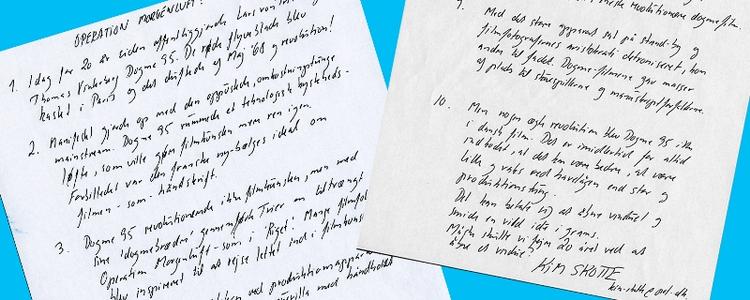 OPERATION MORGENLUFT
1. I dag for 20 år siden offentliggjorde Lars von
Thomas Vinterberg Dogme 95. De røde flyveblade blev
kastet i Paris og det duftede af Maj '68 og revolution!
2. Manifestet gjorde op med den oppustede, omkostningstunge
mainstream. Dogme 95 rummede et teknologisk kyskheds-
løfte, som ville gøre filmkunsten mere ren igen.
Forbilledet var den franske ny-bølges ideal om
filmen - som - håndskrift.
3. Dogme 95 revolutionerede ikke filmkunsten, men med
sine 'dogmebrødre' gennemførte Trier en tiltrængt
Operation Morgenluft - som i 'Riget'. Mange
blev inspireret til at rejse lettet ind i
med produktionsapparat
med håndholdt
revolutionære dogmefilm.
9. Med det store apparat sat på stand-by og
filmfotografernes aristokrati detroniseret, kom
andre til fadet. Dogme-filmene gav masser
af plads til skuespillerne og manuskriptforfatterne.
10. Men nogen ægte revolution blev Dogme 95 ikke
i dansk film. Det er imidlertid for altid
indlodet, at det kan være bedre, at være
lille og vaks ved havelågen end stor og
produktionstung.
Det kan betale sig at åbne vinduet og
smide en vild ide i grams.
Måske skulle vi fejre 20 året ved at
åbne et vindue?
KIM SKOTTE